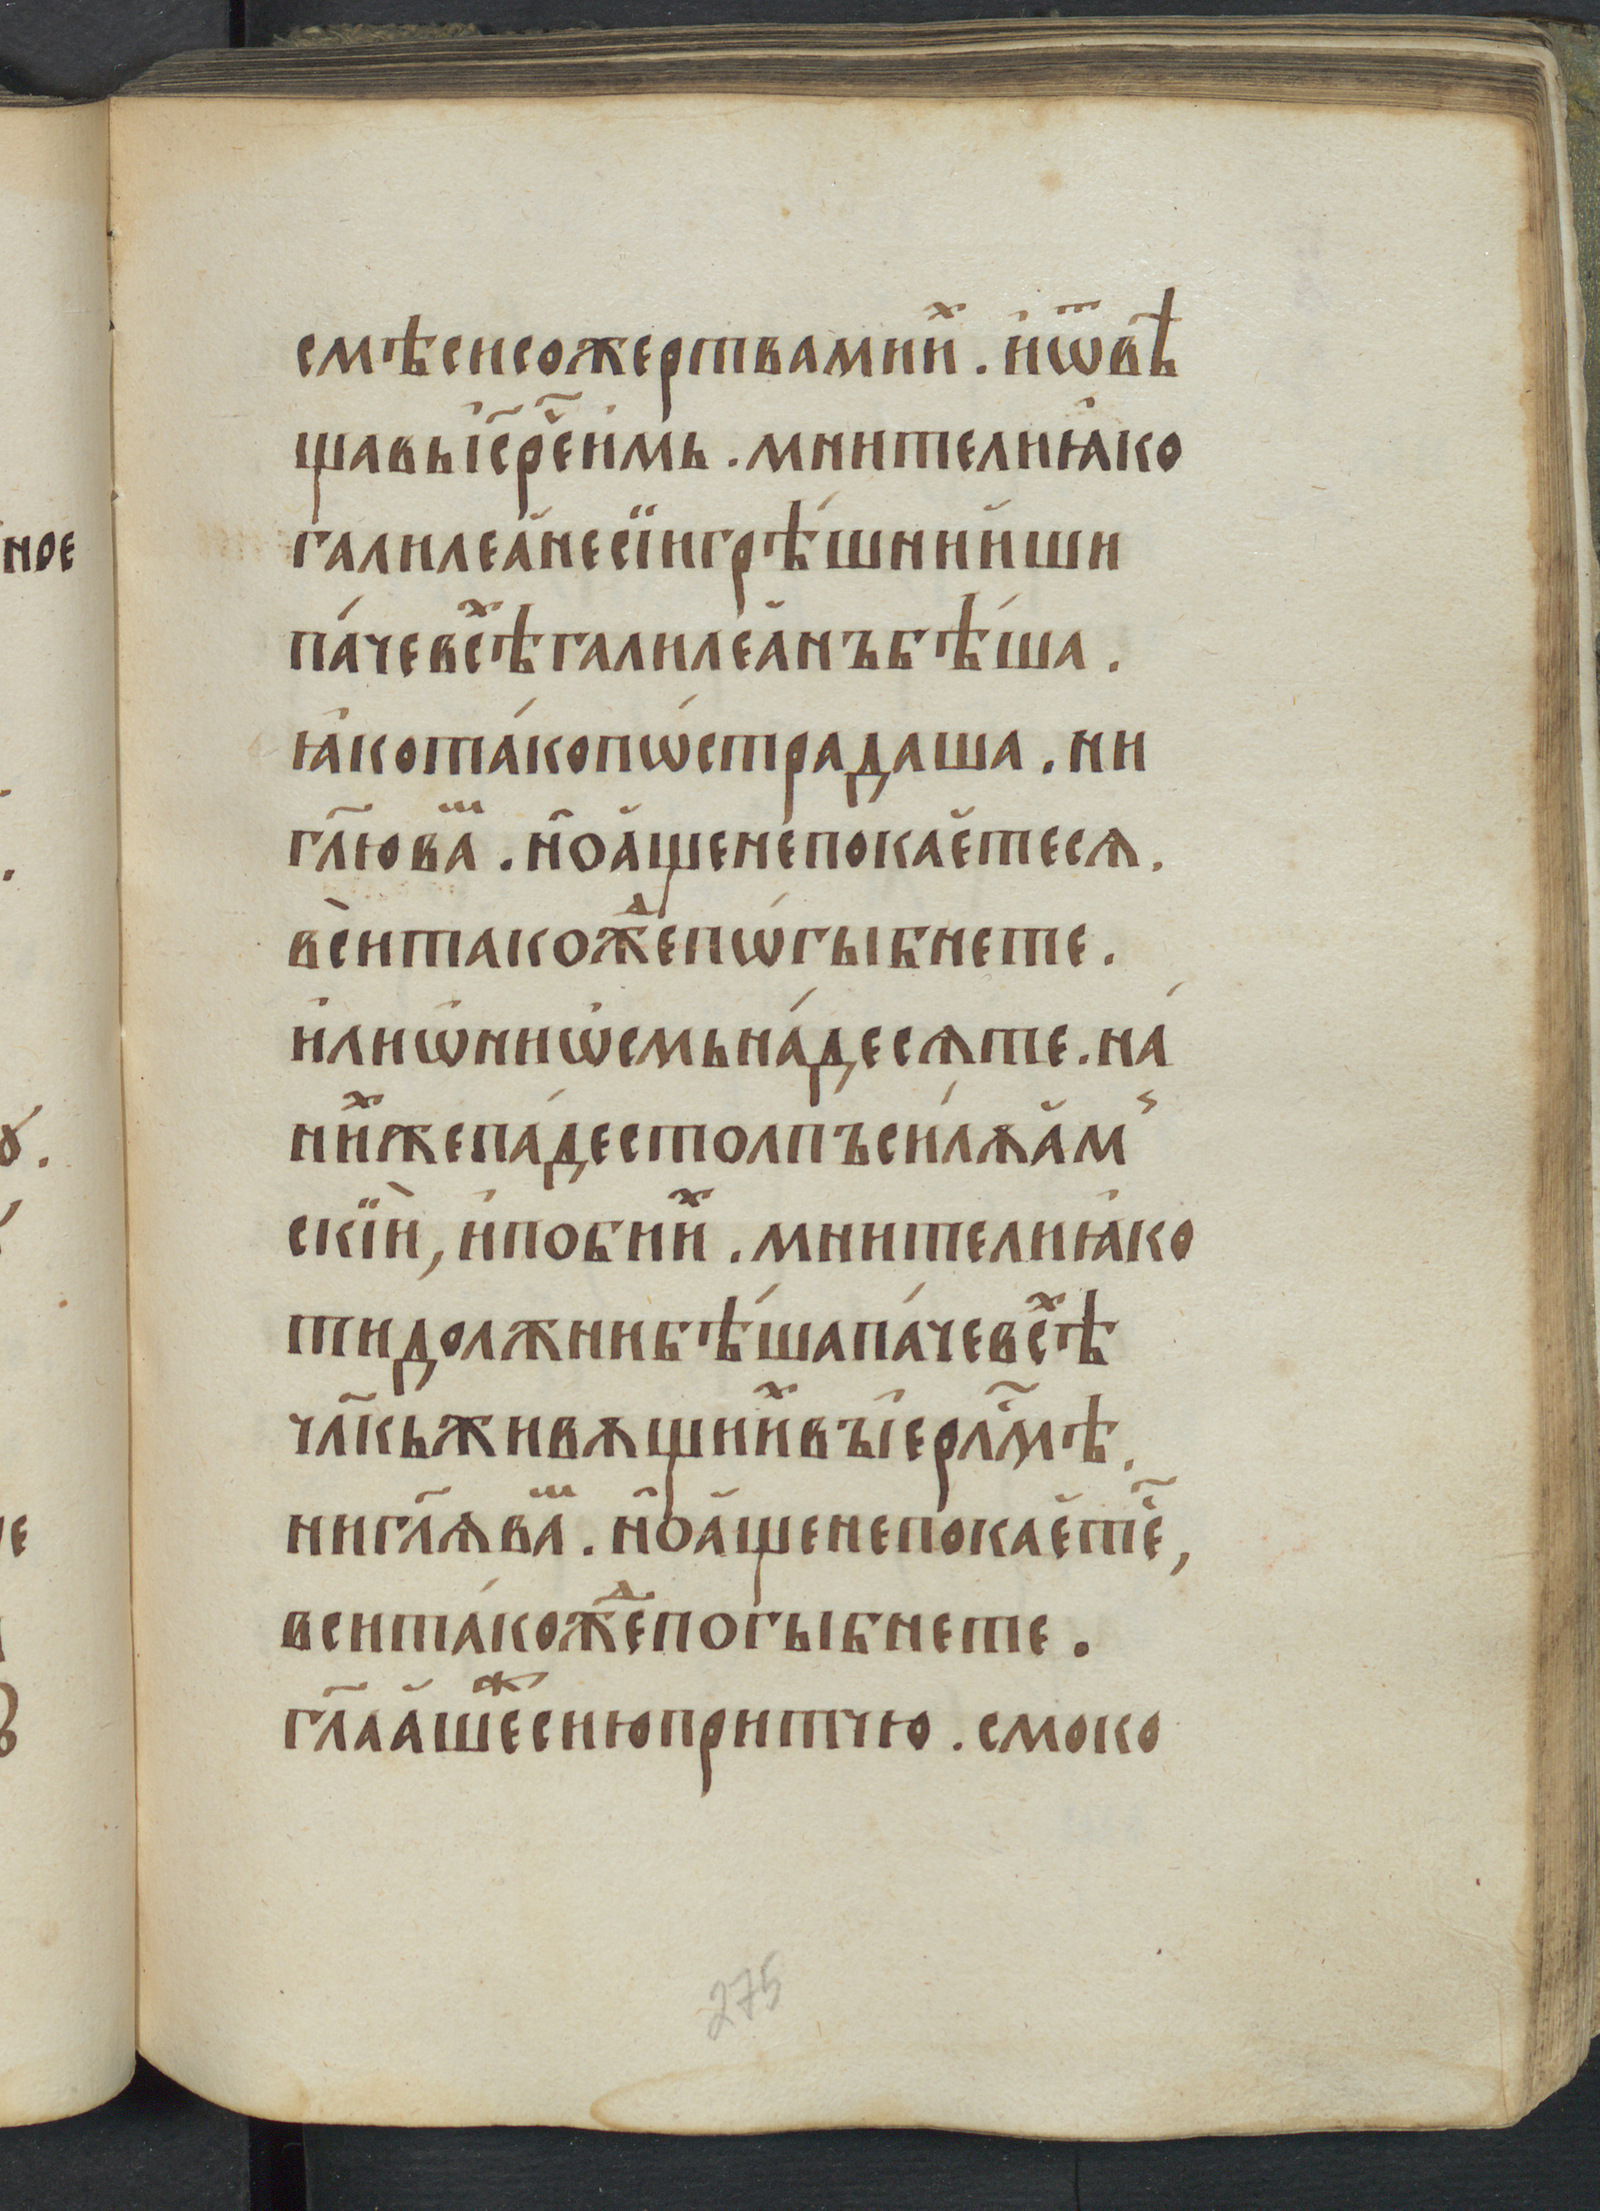 смѣсисожертвамиⷯи҆ . и҆ѿвѣ
щавы҆і҃ср҃еи҆мь . мнителиꙗ҆ко
галилеа҆несїигрѣ́шнии҆ши
па́чевсⷯѣгалилеа҆нъбѣ́ша .
ꙗ҆кота́копѡ́страдаша . ни
гл҃ювⷲа . но҆а҆щенепокае҆тесѧ .
всѝитакожⷣепѡ́гыбнете .
и҆лиѡ҆ниѡ҆смьна́десѧте . на́
ниⷯжепа́десто́лпъси́лѫа҆мꙿ
скїѝ , и҆побиⷯи . мнителиꙗ҆ко
тидолжнибѣ́шапа́чевсⷯѣ
чл҃кьживѧщиⷯивъі҆ерлⷭ҇мѣ .
нигл҃ѧвⷲа . но҆а҆щенепокае҆те҃ ,
вситакожⷣепогыбнете .
гл҃аа҆шⷤесиюпритчю . смоко
275